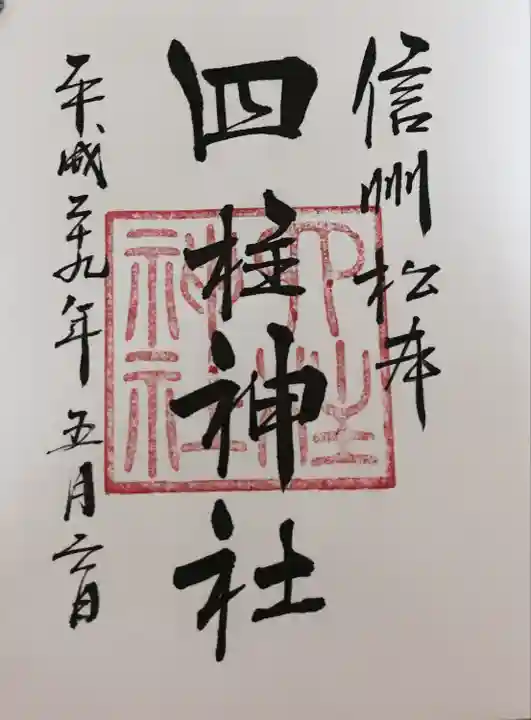 信州松本
四柱神社
四柱神社
平成二十九年五月二日